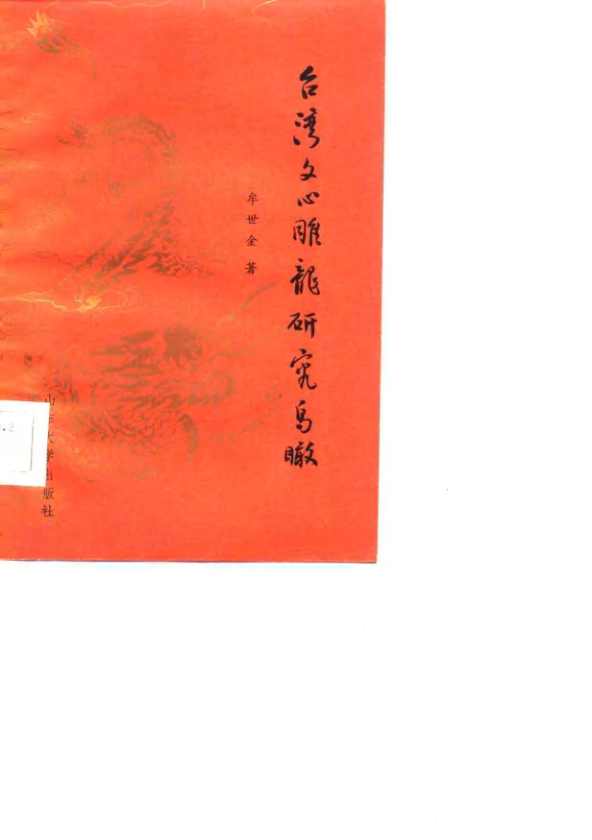 台湾文心雕龍研究鸟瞰
牟世金 著
山东大学出版社
.2